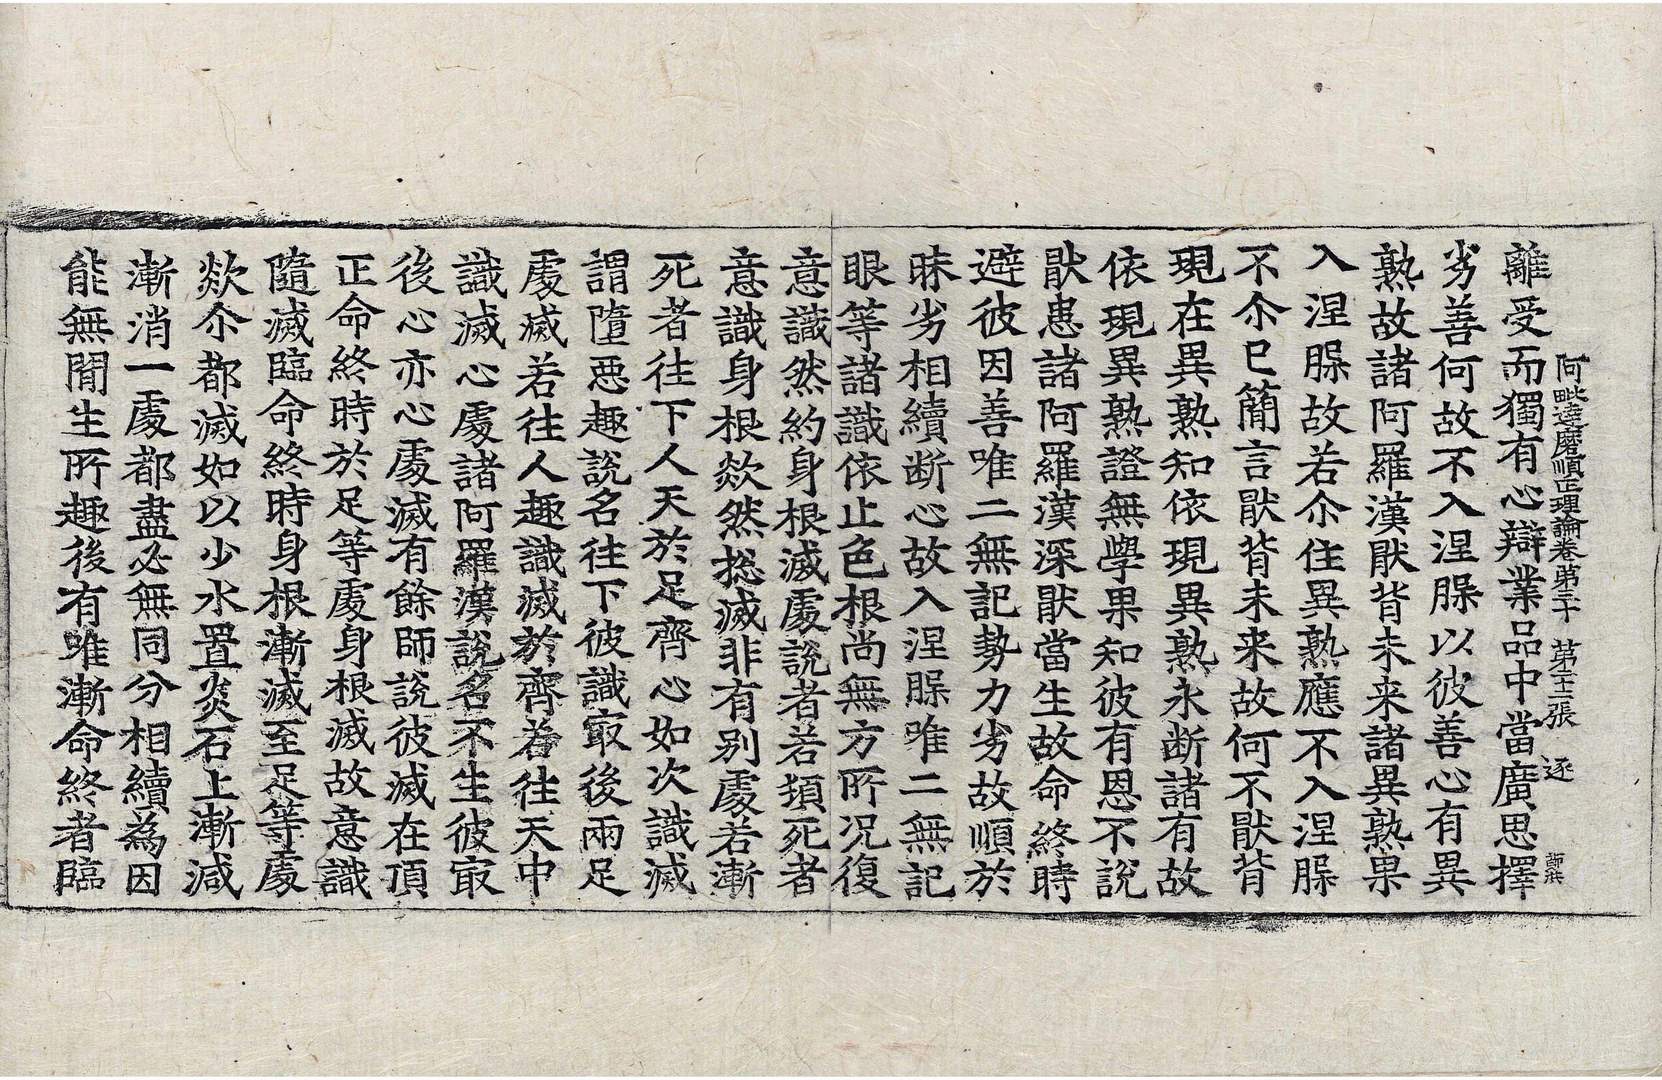 阿毗達磨順正理論卷第三十 第十二張 逐
離受而獨有心辯業品中當廣思擇
劣善何故不入涅槃以彼善心有異
熟故諸阿羅漢猒背未来諸異熟果
入涅槃故若尒住異熟應不入涅槃
不尒已簡言猒背未来故何不猒背
現在異熟知依現異熟永断諸有故
依現異熟證無學果知彼有恩不說
猒患諸阿羅漢深猒當生故命終時
避彼因善唯二無記勢力劣故順於
昧劣相續断心故入涅槃唯二無記
眼等諸識依止色根尚無方所况復
意識然約身根滅處說者若頓死者
意識身根欻然捴滅非有别處若漸
死者往下人天於足齊心如次識滅
謂墮惡趣說名往下彼識㝡後兩足
處滅若往人趣識滅於齊若往天中
識滅心處諸阿羅漢說名不生彼㝡
後心亦心處滅有餘師說彼滅在頂
正命終時於足等處身根滅故意識
隨滅臨命終時身根漸滅至足等處
欻尒都滅如以少水置炎石上漸減
漸消一處都盡必無同分相續為因
能無間生所趣後有唯漸命終者臨